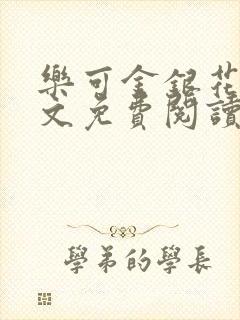 樂可金銀花
文免費閱讀
學弟的學長